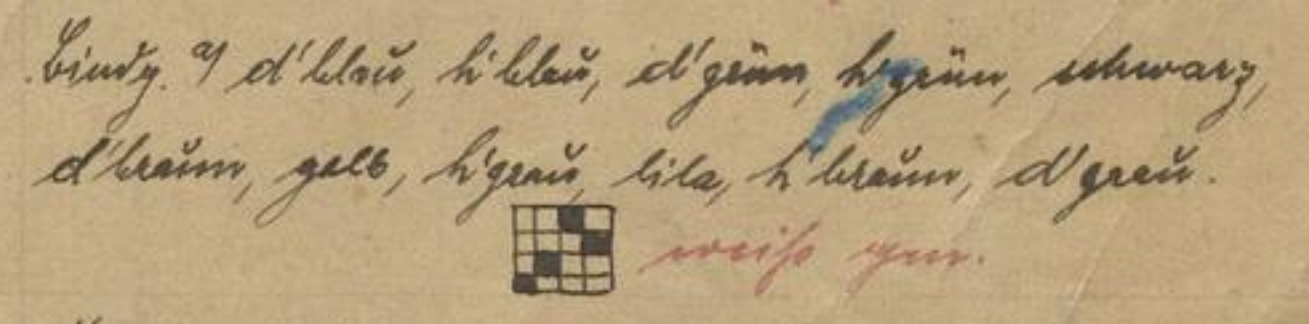 Bindg. a) d'blau, h'blau, d'grün, h'grün, schwarz,
d'braun, gelb, h'grau, lila, h'braun, d'grau.
weiß